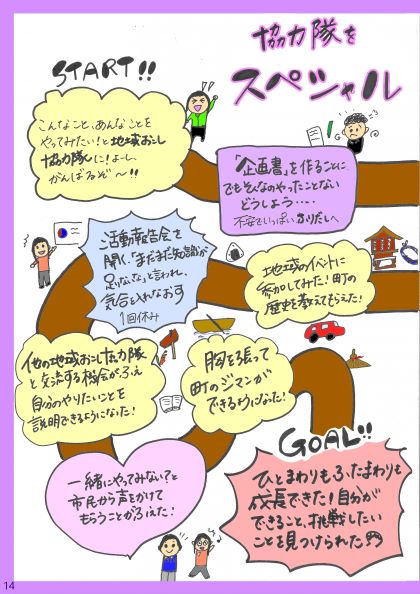 協力隊を
スペシャル
START!!
こんなこと、あんなことを
やってみたい！と地域おこし
協力隊に！よーし、
がんばるぞ〜!!
「企画書」を作ることに
でもそんなのやったことない
どうしよう・・・・
不安でいっぱい ふりだしへ
地域のイベントに
参加してみた！町の
歴史を教えてもらえた！
活動報告会を
開く「まだまだ知識が
足りないな」と言われ、
気合を入れなおす
1回休み
他の地域おこし協力隊
と交流する機会がふえ
自分のやりたいことを
説明できるようになった！
胸を張って
町のジマンが
できるようになった！
一緒にやってみない？と
市民から声をかけて
もらうことがふえた！
GOAL!!
ひとまわりもふたまわりも
成長できた！自分が
できること、挑戦したい
ことを見つけられた
14